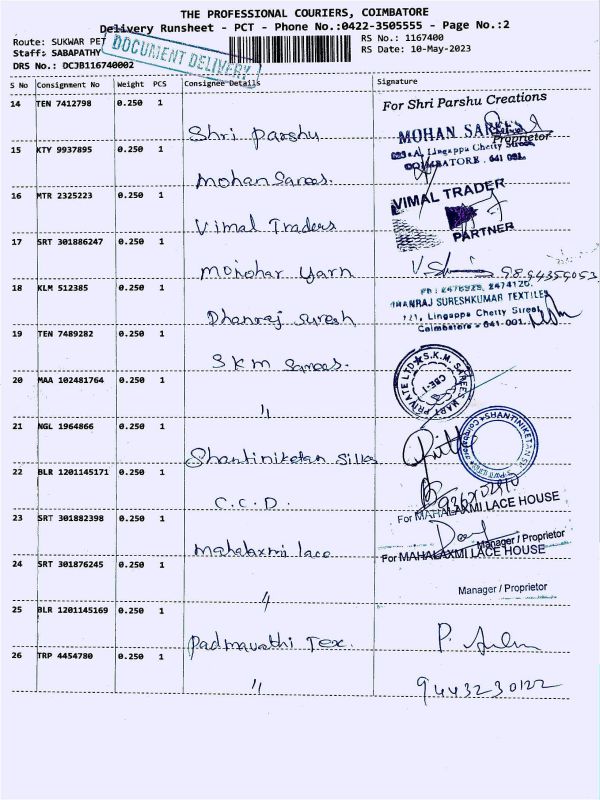 THE PROFESSIONAL COURIERS, COIMBATORE
Delivery Runsheet - PCT - Phone No.:0422-3505555 - Page No.:2
Route: SUKWAR PET
RS No.: 1167400
Staff: SABAPATHY
RS Date: 10-May-2023
DRS No.: DCJB116740002
DOCUMENT DELIVERY
S No Consignment No Weight PCS Consignee Details Signature
14 TEN 7412798 0.250 1
For Shri Parshu Creations
Shri Parshu
Proprietor
MOHAN SAREES
15 KTY 9937895 0.250 1
Lingappa Chetty Street
COIMBATORE . 641 001.
Mohan Sarees.
16 MTR 2325223 0.250 1
VIMAL TRADER
Vimal Traders
PARTNER
17 SRT 301886247 0.250 1
Monohar Yarn
18 KLM 512385 0.250 1
PH : 2476928, 2474120.
DHANRAJ SURESHKUMAR TEXTILES
Lingappa Chetty Street,
Dhanraj Suresh
Coimbatore - 641 001.
19 TEN 7489282 0.250 1
SKM Sarees.
S.K.M. SAREES MART PRIVATE LTD
CBE-1
20 MAA 102481764 0.250 1
"
21 NGL 1964866 0.250 1
SHANTINIKETAN
Shantiniketan Silks
22 BLR 1201145171 0.250 1
C.C.D.
For MAHALAXMI LACE HOUSE
23 SRT 301882398 0.250 1
Manager / Proprietor
Mahalaxmi lace
For MAHALAXMI LACE HOUSE
24 SRT 301876245 0.250 1
Manager / Proprietor
"
25 BLR 1201145169 0.250 1
Padmavathi Tex.
26 TRP 4454780 0.250 1
"
9443230122